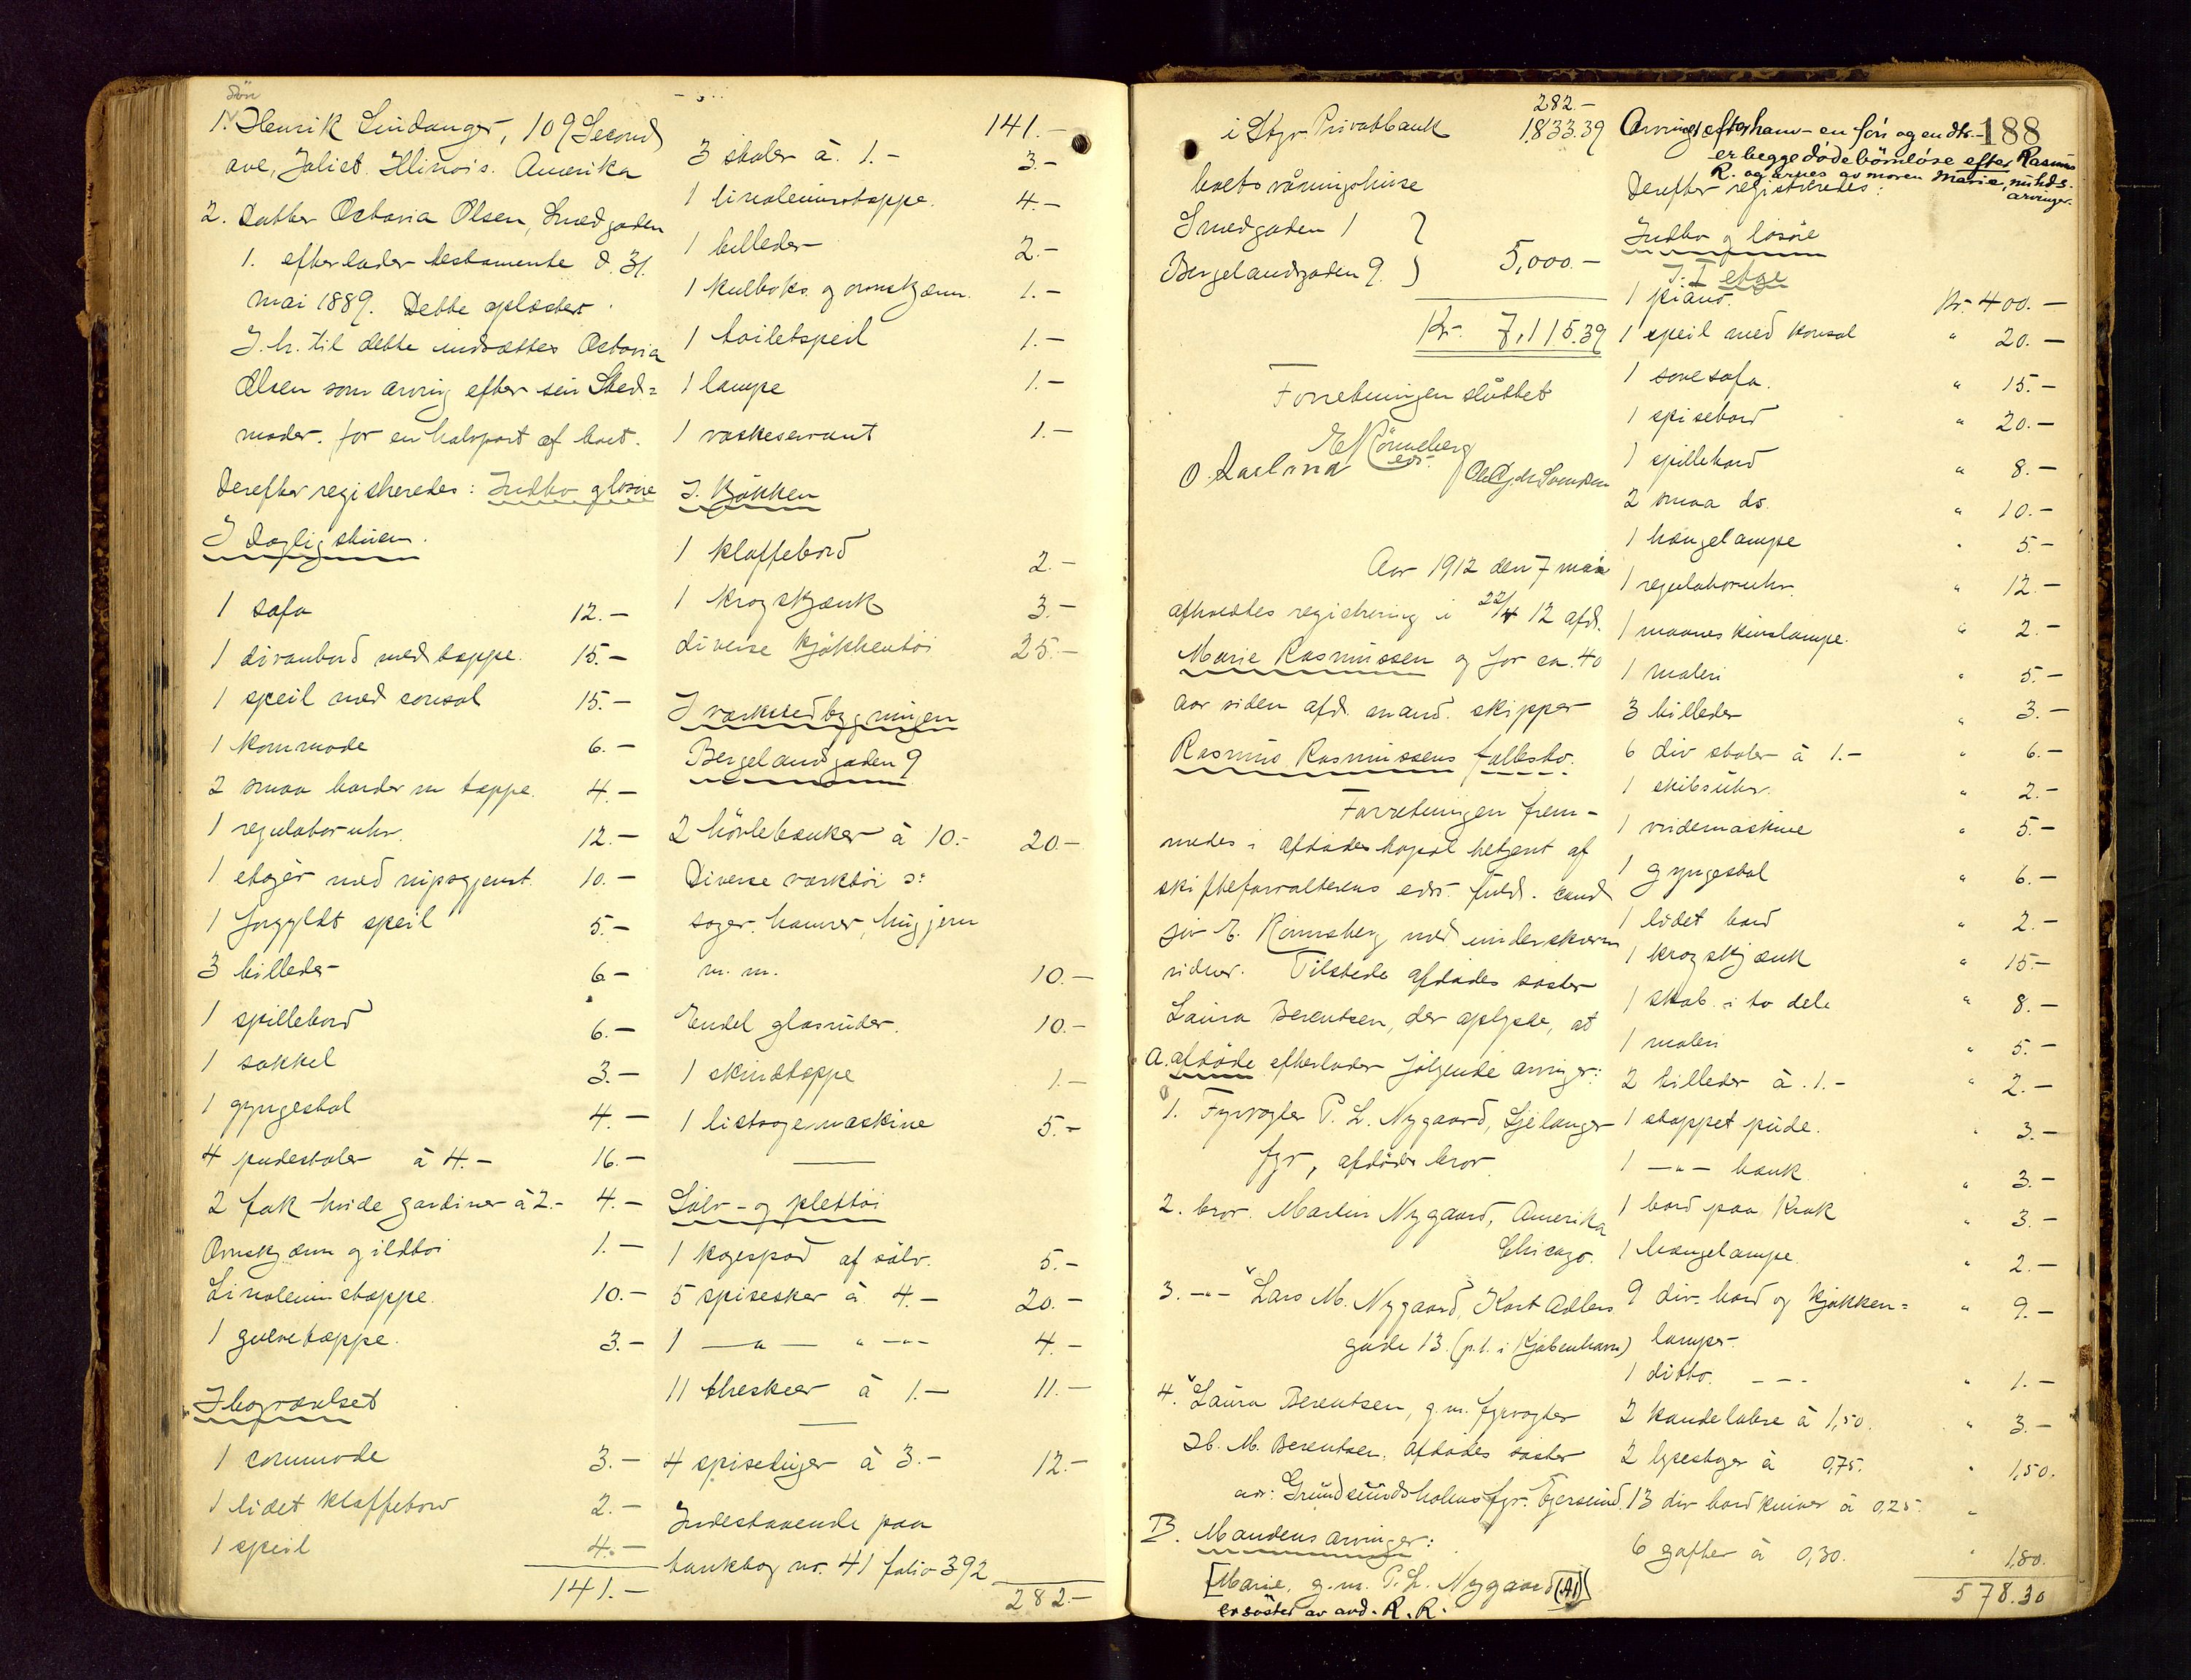 Søn
1. Henrik Lindanger, 109 Second
ave, Joliet. Illinois. Amerika
2. Datter Octavia Olsen, Smedgaden
1. efterlader testamente d. 31.
mai 1889. Dette oplæstes.
I. h. til dette indsættes Octavia
Olsen som arving efter sin Sted=
moder. for en halvpart af boet.
Derefter registreredes: Indbo & løsøre
I Dagligstuen.
1 sofa 12.-
1 divanbord med tæppe. 15.-
1 speil med consol 15.-
1 kommode 6.-
2 smaa border m tæppe. 4.-
1 regulatoruhr. 12.-
1 etagèr med nipsgjenst. 10.-
1 forgyldt speil 5.-
3 billeder 6-
1 spillebord 6.-
1 sokkel 3.-
1 gyngestol 4.-
4 pudestoler à 4.- 16.-
2 fak hvide gardiner à 2.- 4.-
Ovnskjærm & ildtøi 1.-
Linoleumstæppe. 10.-
1 gulvetæppe. 3.-
I soveværelset
1 commode 3.-
1 lidet klaffebord 2.-
1 speil 4.-
141.-
141.-
3 stoler à. 1.- 3.-
1 linoleumstæppe. 4.-
1 billeder 2.-
1 kulboks. & ovnskjærm. 1.-
1 toiletspeil 1.-
1 lampe 1.-
1 vaskeservant 1.-
I. Kjøkken
1 klaffebord 2.-
1 krogskjænk 3.-
diverse kjøkkentøi 25.-
I værkstedbygningen
Bergelandsgaden 9
2 høvlebænker à 10.- 20.-
Diverse værktøi s:
sager. hamrer, hugjern
m. m. 10.-
Endel glasruder. 10.-
1 skindtæppe 1.-
1 listsagemaskine 5.-
Sølv- og plettøi
1 kagespad af sølv. 5.-
5 spiseskeer à 4.- 20.-
1 -"- " -"- 4.-
11 theskeer à 1.- 11.-
4 spiseduger à 3.- 12.-
Indestaaende paa
bankbog no. 41 folio 392
282.-
282.-
i Stgr Privatbank 1833.39
boets vaaningshuse
Smedgaden 1
Bergelandsgaden 9. 5,000.-
Kr. 7,115.39
Forretningen sluttet
E Rönneberg
edr.
O. Aasland
Aar 1912 den 7 mai
afholdtes registrering i 22/4 12 afd.
Marie Rasmussen og for ca. 40
aar siden afd. mand. skipper
Rasmus Rasmussens fællesbo.
Forretningen frem-
medes i afdødes bopæl betjent af
skifteforvalterens edsv. fuldm. cand
jur E. Rönneberg med underskrevne
vidner. Tilstede afdødes søster
Laura Berentsen, der oplyste, at
A. afdøde efterlader følgende arvinger:
1. Fyrvogter P. L. Nygaard, Gjelanger
fyr, afdødes bror.
2. bror. Martin Nygaard, Amerika
Chicago.
3. -"- Lars M. Nygaard, Kort Adlers
gade 13. (p.t. i Kjøbenhavn)
4. Laura Berentsen, g.m. fyrvogter
Ib. M. Berentsen. afdødes søster
adr: Grundsundsholmsfyr. Egersund.
B. Mandens arvinger:
[Marie, g.m. P. L. Nygaard (A1)]
er søster av avd. R. R.
Arvinger efter ham - en søn og en dtr. -
er begge døde børnløse efter Rasmus
R. og arves av moren Marie, nuhds.
arvinger.
188
Derefter registreredes:
Indbo & løsøre
I. I etge
1 piano. Kr. 400.-
1 speil med konsol " 20.-
1 sovesofa. " 15.-
1 spisebord " 20.-
1 spillebord " 8.-
2 smaa do. " 10.-
1 hængelampe " 5.-
1 regulatoruhr. " 12.-
1 maaneskinslampe. " 2.-
1 maleri " 5.-
3 billeder " 3.-
6 div stoler à 1.- " 6.-
1 skibsuhr. " 2.-
1 vridemaskine " 5.-
1 gyngestol " 6.-
1 lidet bord " 2.-
1 krogskjænk " 15.-
1 skab. i to dele " 8.-
1 maleri " 5.-
2 billeder à. 1.- " 2.-
1 stoppet pude. " 3.-
1 -"- bænk " 3.-
1 bord paa Krak " 3.-
1 hængelampe. " 2.-
9 div. bord og kjøkken= " 9.-
lamper.
1 ditto. --- " 1.-
2 kandelabre à 1,50. " 3.-
2 lysestager à 0,75. " 1,50.
13 div bordkniver à 0,25. "
6 gafler à 0,30. " 1,80.
578.30